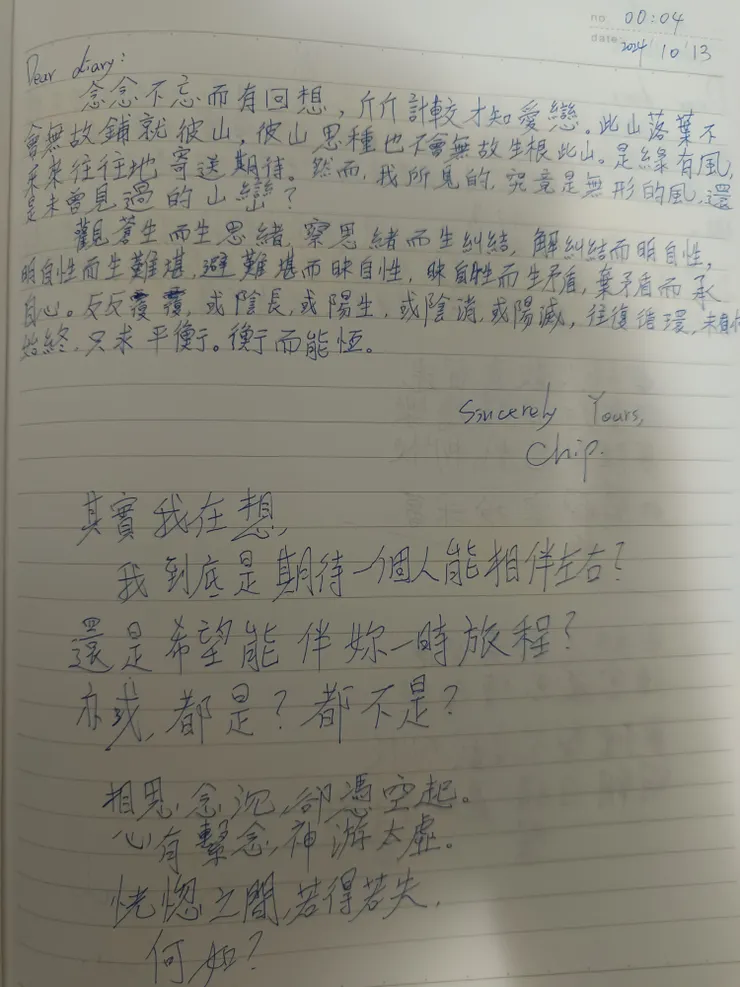 no. 00:04
date: 2024 10 13
Dear diary:
念念不忘而有回想，斤斤計較才知愛戀。此山落葉不
會無故鋪就彼山，彼山思種也不會無故生根此山。是緣有風，
來來往往地寄送期待。然而，我所見的，究竟是無形的風，還
是未曾見過的山巒？
觀蒼生而生思緒，察思緒而生糾結，解糾結而明自性，
明自性而生難堪，避難堪而昧自性，昧自性而生矛盾，棄矛盾而承
自心。反反覆覆，或陰長，或陽生，或陰消，或陽滅，往復循環，未有
始終，只求平衡。衡而能恆。
Sincerely Yours,
Chip.
其實我在想，
我到底是期待一個人能相伴左右？
還是希望能伴妳一時旅程？
亦或，都是？都不是？
相思念沉，卻憑空起。
心有繫念，神游太虛。
恍惚之間，若得若失，
何如？